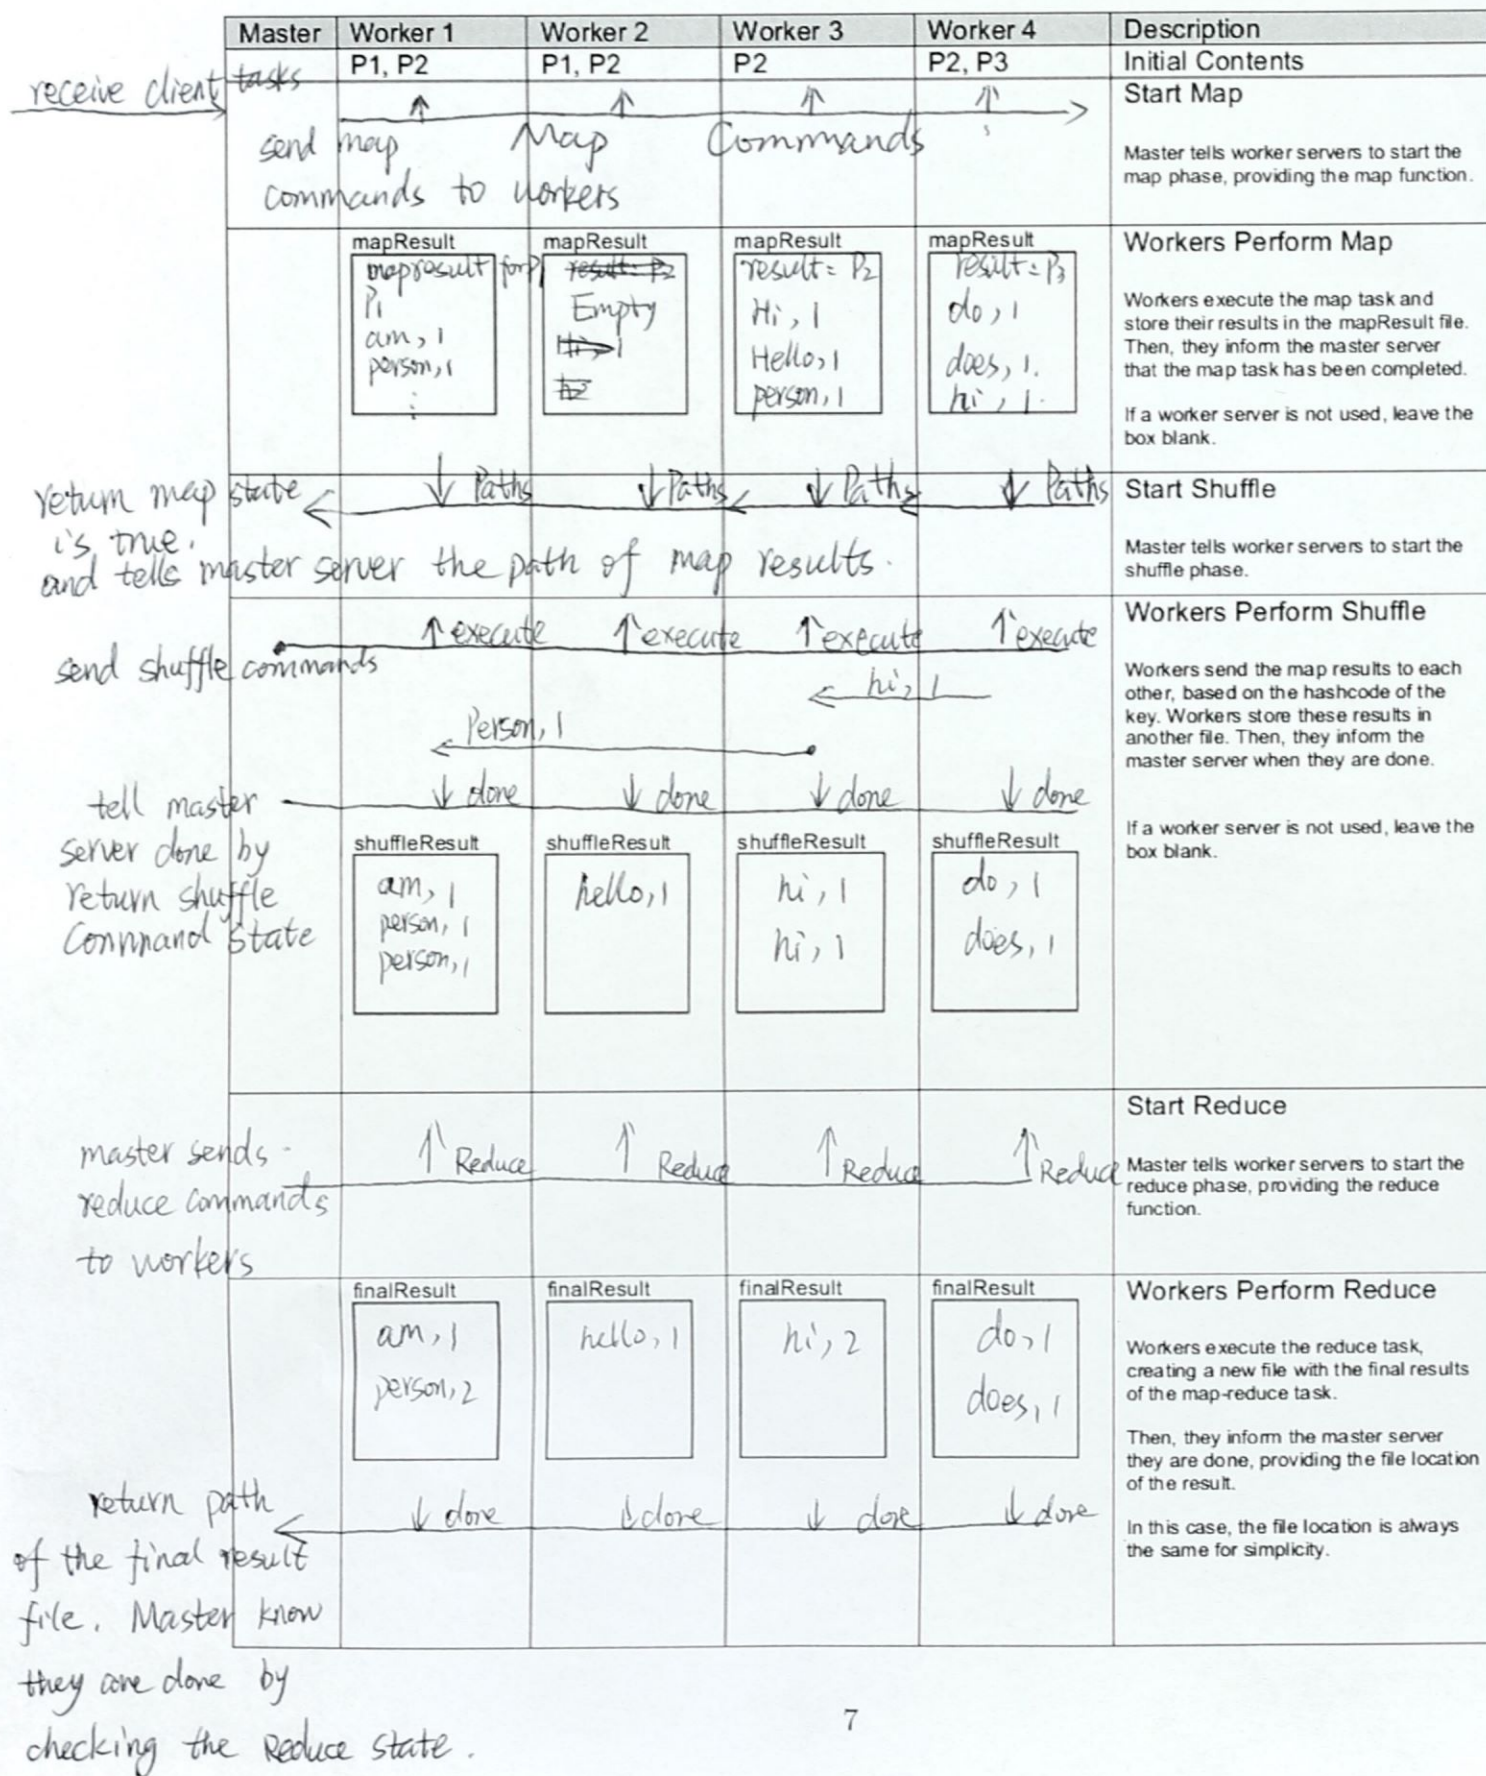 Master Worker 1 Worker 2 Worker 3 Worker 4 Description
P1, P2 P1, P2 P2 P2, P3 Initial Contents
receive client tasks
Start Map
send map Map Commands
commands to workers
Master tells worker servers to start the
map phase, providing the map function.
mapResult
mapresult for P1
P1
am, 1
person, 1
⋮
mapResult
result = P2
Empty
Hi, 1
mapResult
result = P2
Hi, 1
Hello, 1
person, 1
mapResult
result = P3
do, 1
does, 1.
hi, 1.
Workers Perform Map
Workers execute the map task and
store their results in the mapResult file.
Then, they inform the master server
that the map task has been completed.
If a worker server is not used, leave the
box blank.
return map state
is true.
and tells master server the path of map results.
↓ Paths ↓ Paths ↓ Paths ↓ Paths
Start Shuffle
Master tells worker servers to start the
shuffle phase.
send shuffle commands
↑ execute ↑ execute ↑ execute ↑ execute
hi, 1
Person, 1
tell master
server done by
return shuffle
Command state
↓ done ↓ done ↓ done ↓ done
shuffleResult
am, 1
person, 1
person, 1
shuffleResult
hello, 1
shuffleResult
hi, 1
hi, 1
shuffleResult
do, 1
does, 1
Workers Perform Shuffle
Workers send the map results to each
other, based on the hashcode of the
key. Workers store these results in
another file. Then, they inform the
master server when they are done.
If a worker server is not used, leave the
box blank.
master sends
reduce commands
to workers
↑ Reduce ↑ Reduce ↑ Reduce ↑ Reduce
Start Reduce
Master tells worker servers to start the
reduce phase, providing the reduce
function.
finalResult
am, 1
person, 2
finalResult
hello, 1
finalResult
hi, 2
finalResult
do, 1
does, 1
Workers Perform Reduce
Workers execute the reduce task,
creating a new file with the final results
of the map-reduce task.
Then, they inform the master server
they are done, providing the file location
of the result.
In this case, the file location is always
the same for simplicity.
↓ done ↓ done ↓ done ↓ done
return path
of the final result
file. Master know
they are done by
checking the Reduce state.
7